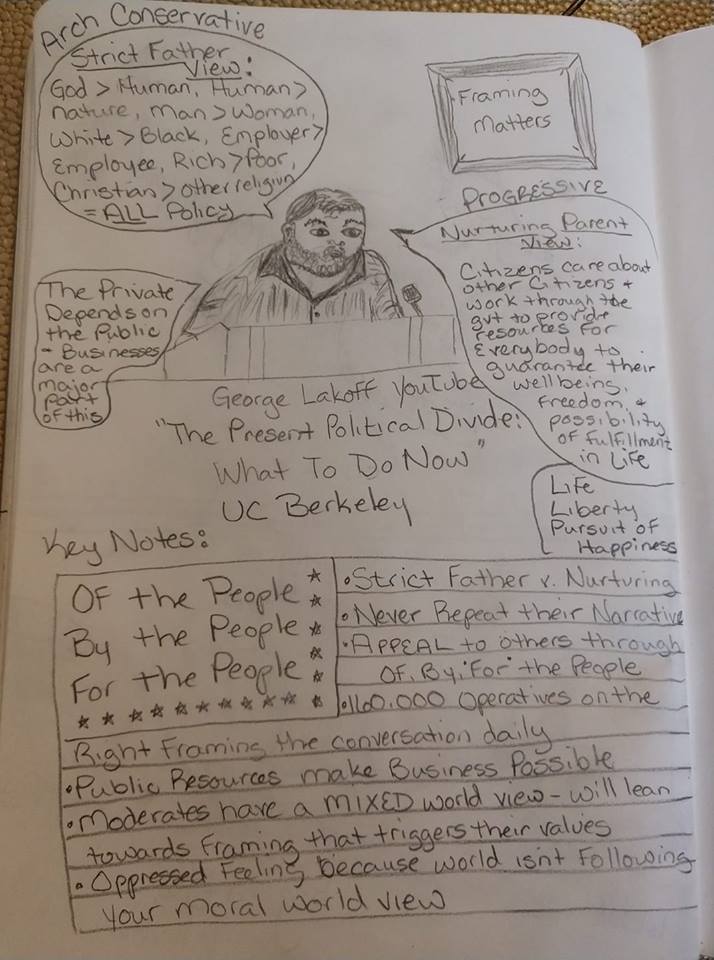 Arch Conservative
Strict Father
View:
God > Human, Human >
nature, Man > Woman,
White > Black, Employer >
Employee, Rich > Poor,
Christian > other religion
= ALL Policy
Framing
Matters
PROGRESSIVE
Nurturing Parent
View:
Citizens care about
other Citizens &
work through the
gvt to provide
resources for
everybody to
guarantee their
well being,
freedom, &
possibility
of fulfillment
in Life
The Private
Depends on
the Public
- Businesses
are a
major
part
of this
George Lakoff YouTube
"The Present Political Divide:
What To Do Now"
UC Berkeley
Life
Liberty
Pursuit of
Happiness
Key Notes:
Of the People
By the People
For the People
• Strict Father v. Nurturing
• Never Repeat their Narrative
• APPEAL to others through
Of, By, "For" the People
• 160,000 Operatives on the
Right Framing the conversation daily
• Public Resources make Business Possible
• Moderates have a MIXED world view - will lean
towards Framing that triggers their values
• Oppressed Feeling because world isnt Following
your moral world view